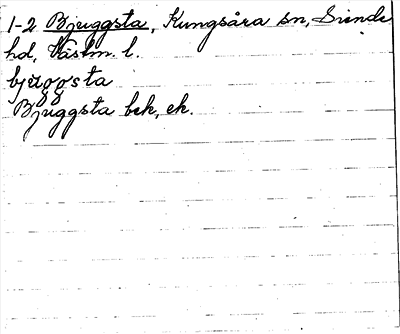 1-2 Bjuggsta, Kungsåra sn, Siende
hd, Västm. l.
bjuggsta
Bjuggsta bek, ek.